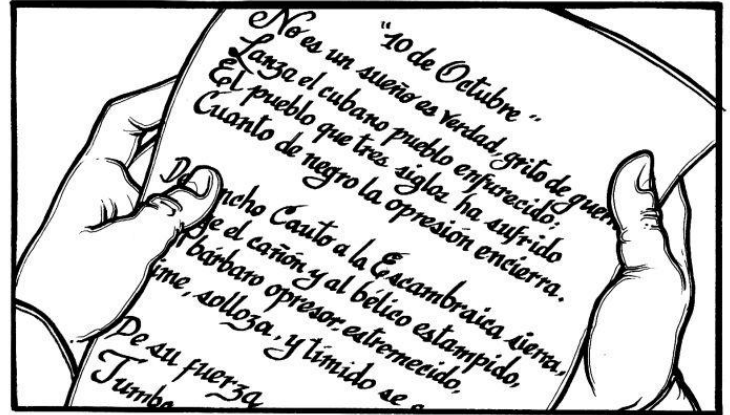 "10 de Octubre"
No es un sueño es verdad, grito de guerr
Lanza el cubano pueblo enfurecido;
El pueblo que tres siglos ha sufrido
Cuanto de negro la opresión encierra.
De ncho Cauto a la Escambraica sierra,
ge el cañón y al bélico estampido,
l bárbaro opresor estremecido,
ime, solloza, y tímido se
De su fuerza
Tumbo